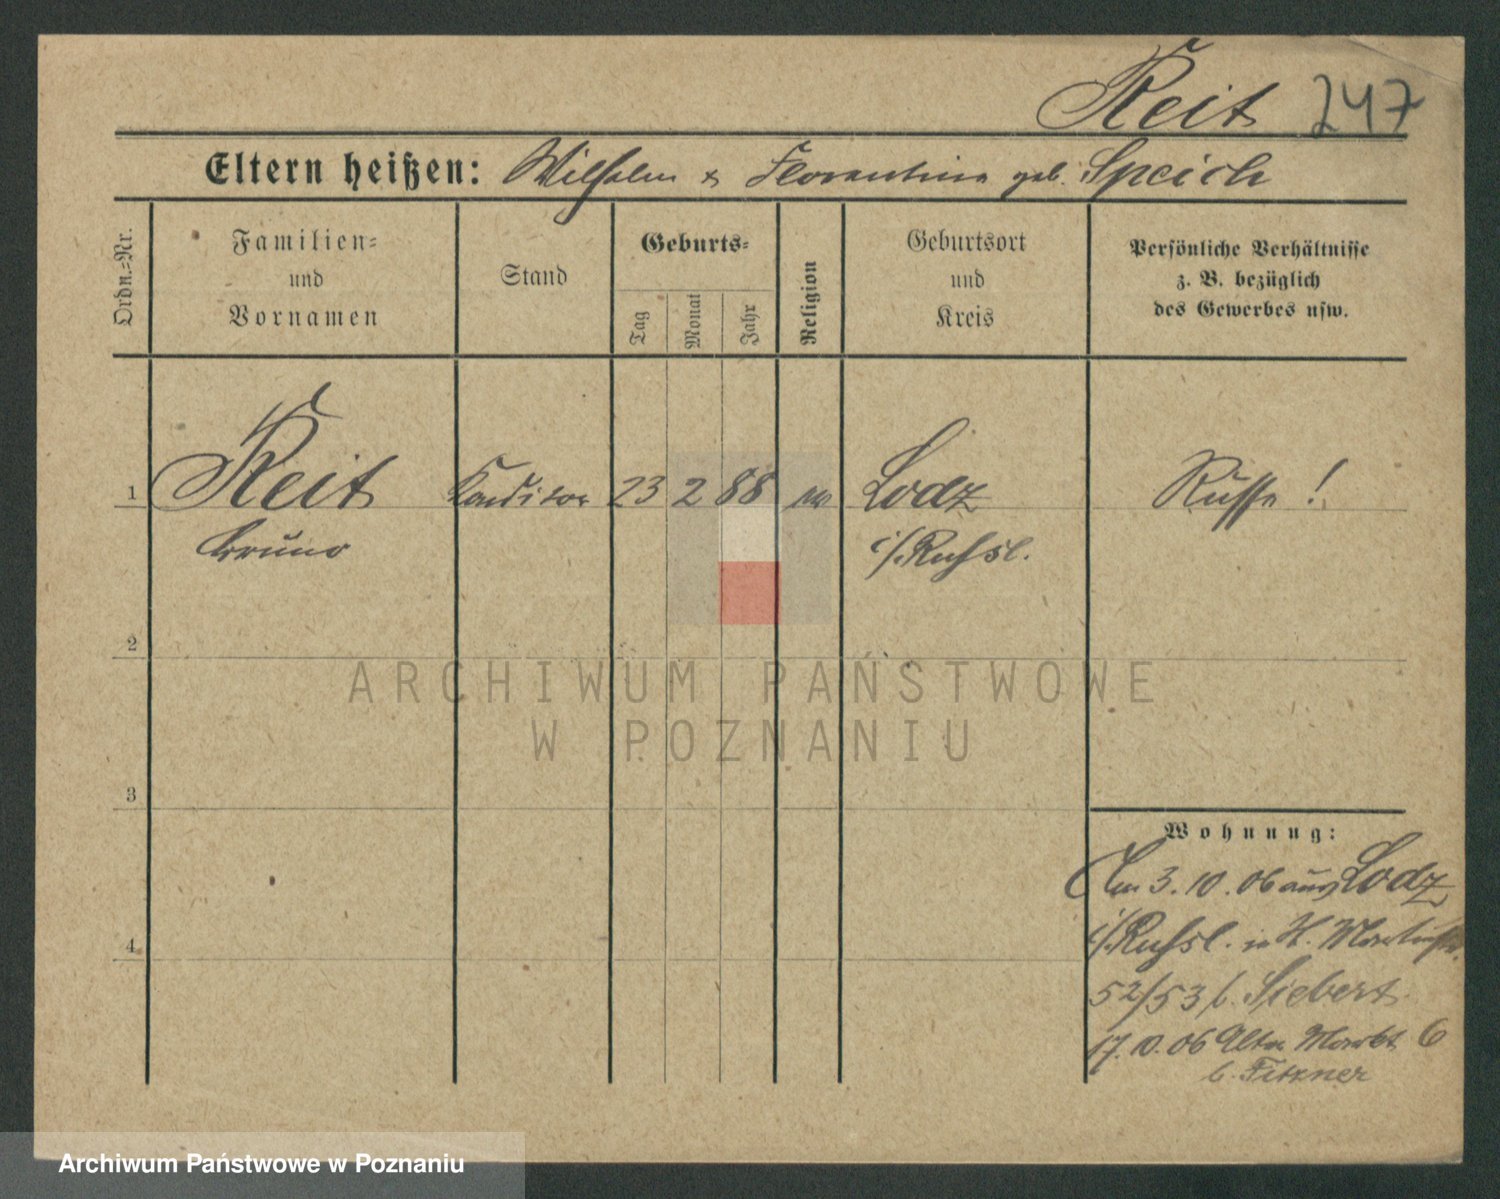 Keit 247
Eltern heißen: Wilhelm & Florentine geb. Speich
Ordn.=Nr.
Familien=
und
Vornamen
Stand
Geburts=
Tag
Monat
Jahr
Religion
Geburtsort
und
Kreis
Persönliche Verhältnisse
z. B. bezüglich
des Gewerbes usw.
1 Keit Konditor 23 2 88 Lodz Russe !
Bruno i/Russl.
2
3
4
Wohnung:
Am 3.10.06 aus Lodz
i/Russl. in St. Martinstr.
52/53 b. Siebert
17.10.06 Alter Markt 6
b. Fitzner
ARCHIWUM PAŃSTWOWE
W POZNANIU
Archiwum Państwowe w Poznaniu